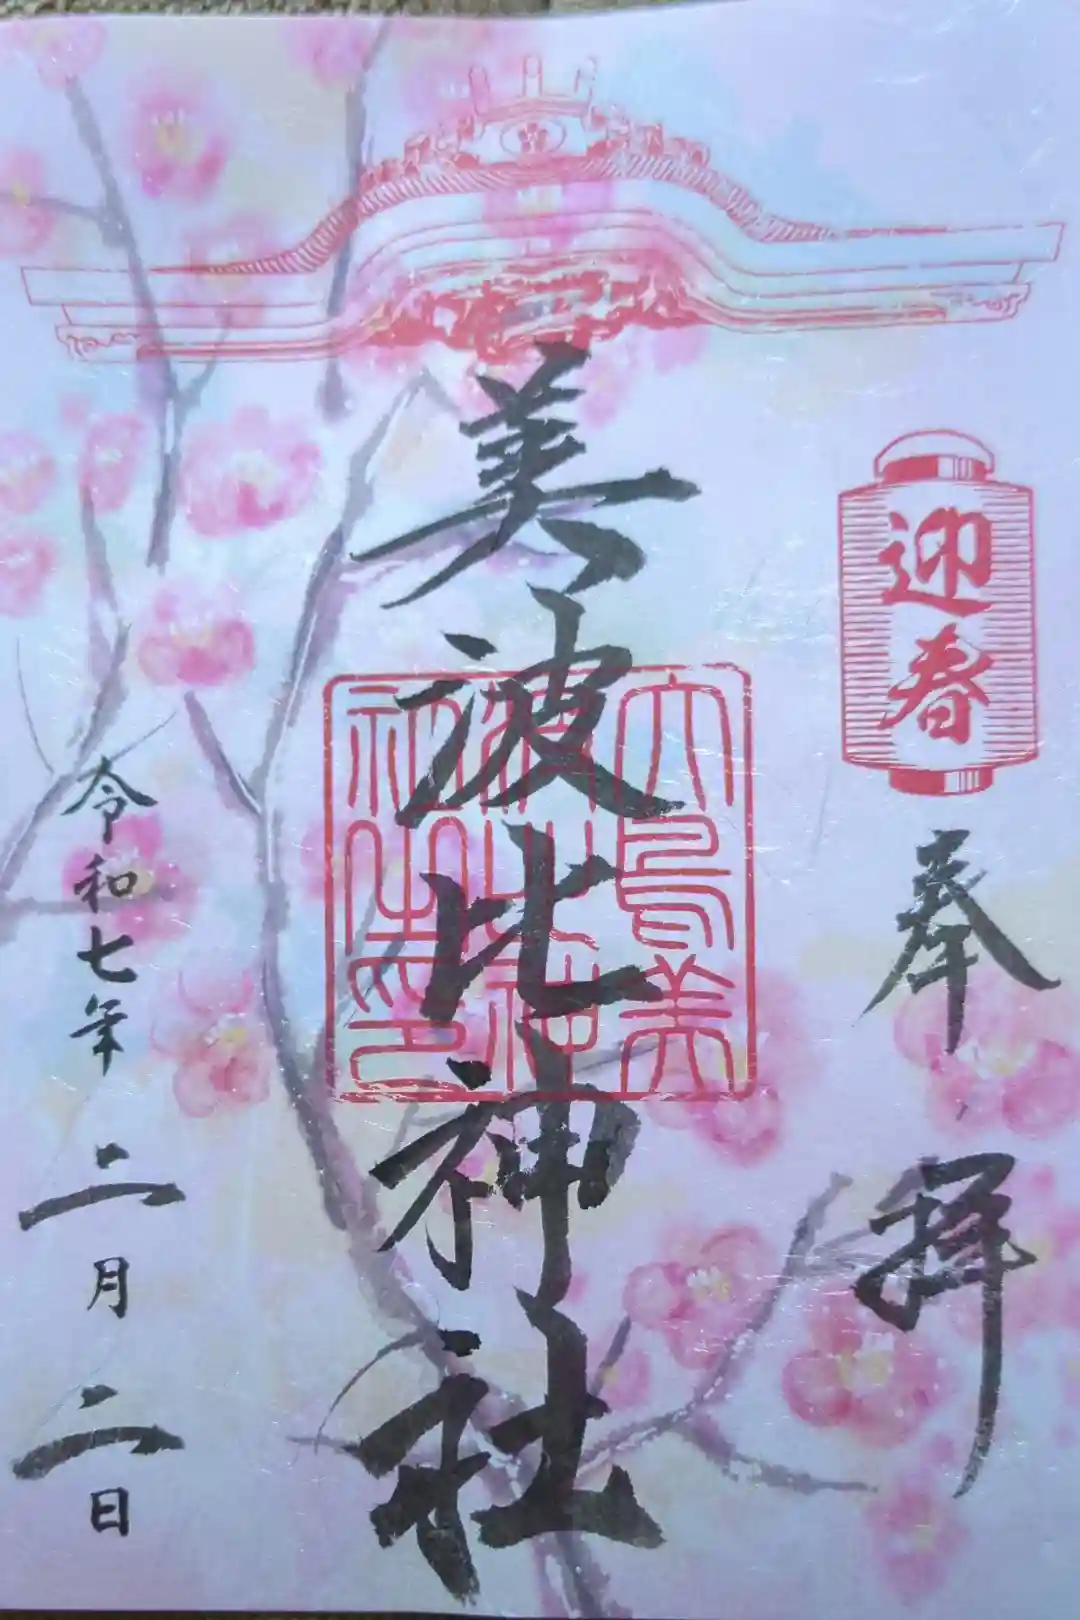 迎春
奉拝
美波比神社
大鳥美
波比神
社之印
令和七年二月二日